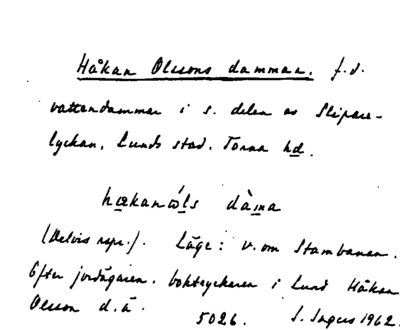 Håkan Olssons dammar. f.d.
vattendammar i s. delen av Slipare-
lyckan, Lunds stad. Torna hd.
hækanὼls dàma
(Delvis rspr.). Läge: v. om Stambanan.
Efter jordägaren, boktryckaren i Lund Håkan
Olsson d.ä.
5026. S. Ingers 1962.